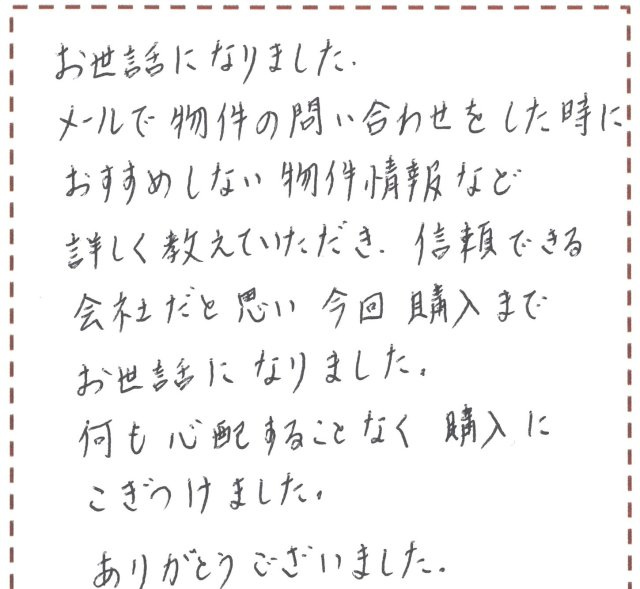 お世話になりました.
メールで物件の問い合わせをした時に
おすすめしない物件情報など
詳しく教えていただき.信頼できる
会社だと思い今回購入まで
お世話になりました。
何も心配することなく購入に
こぎつけました。
ありがとうございました.